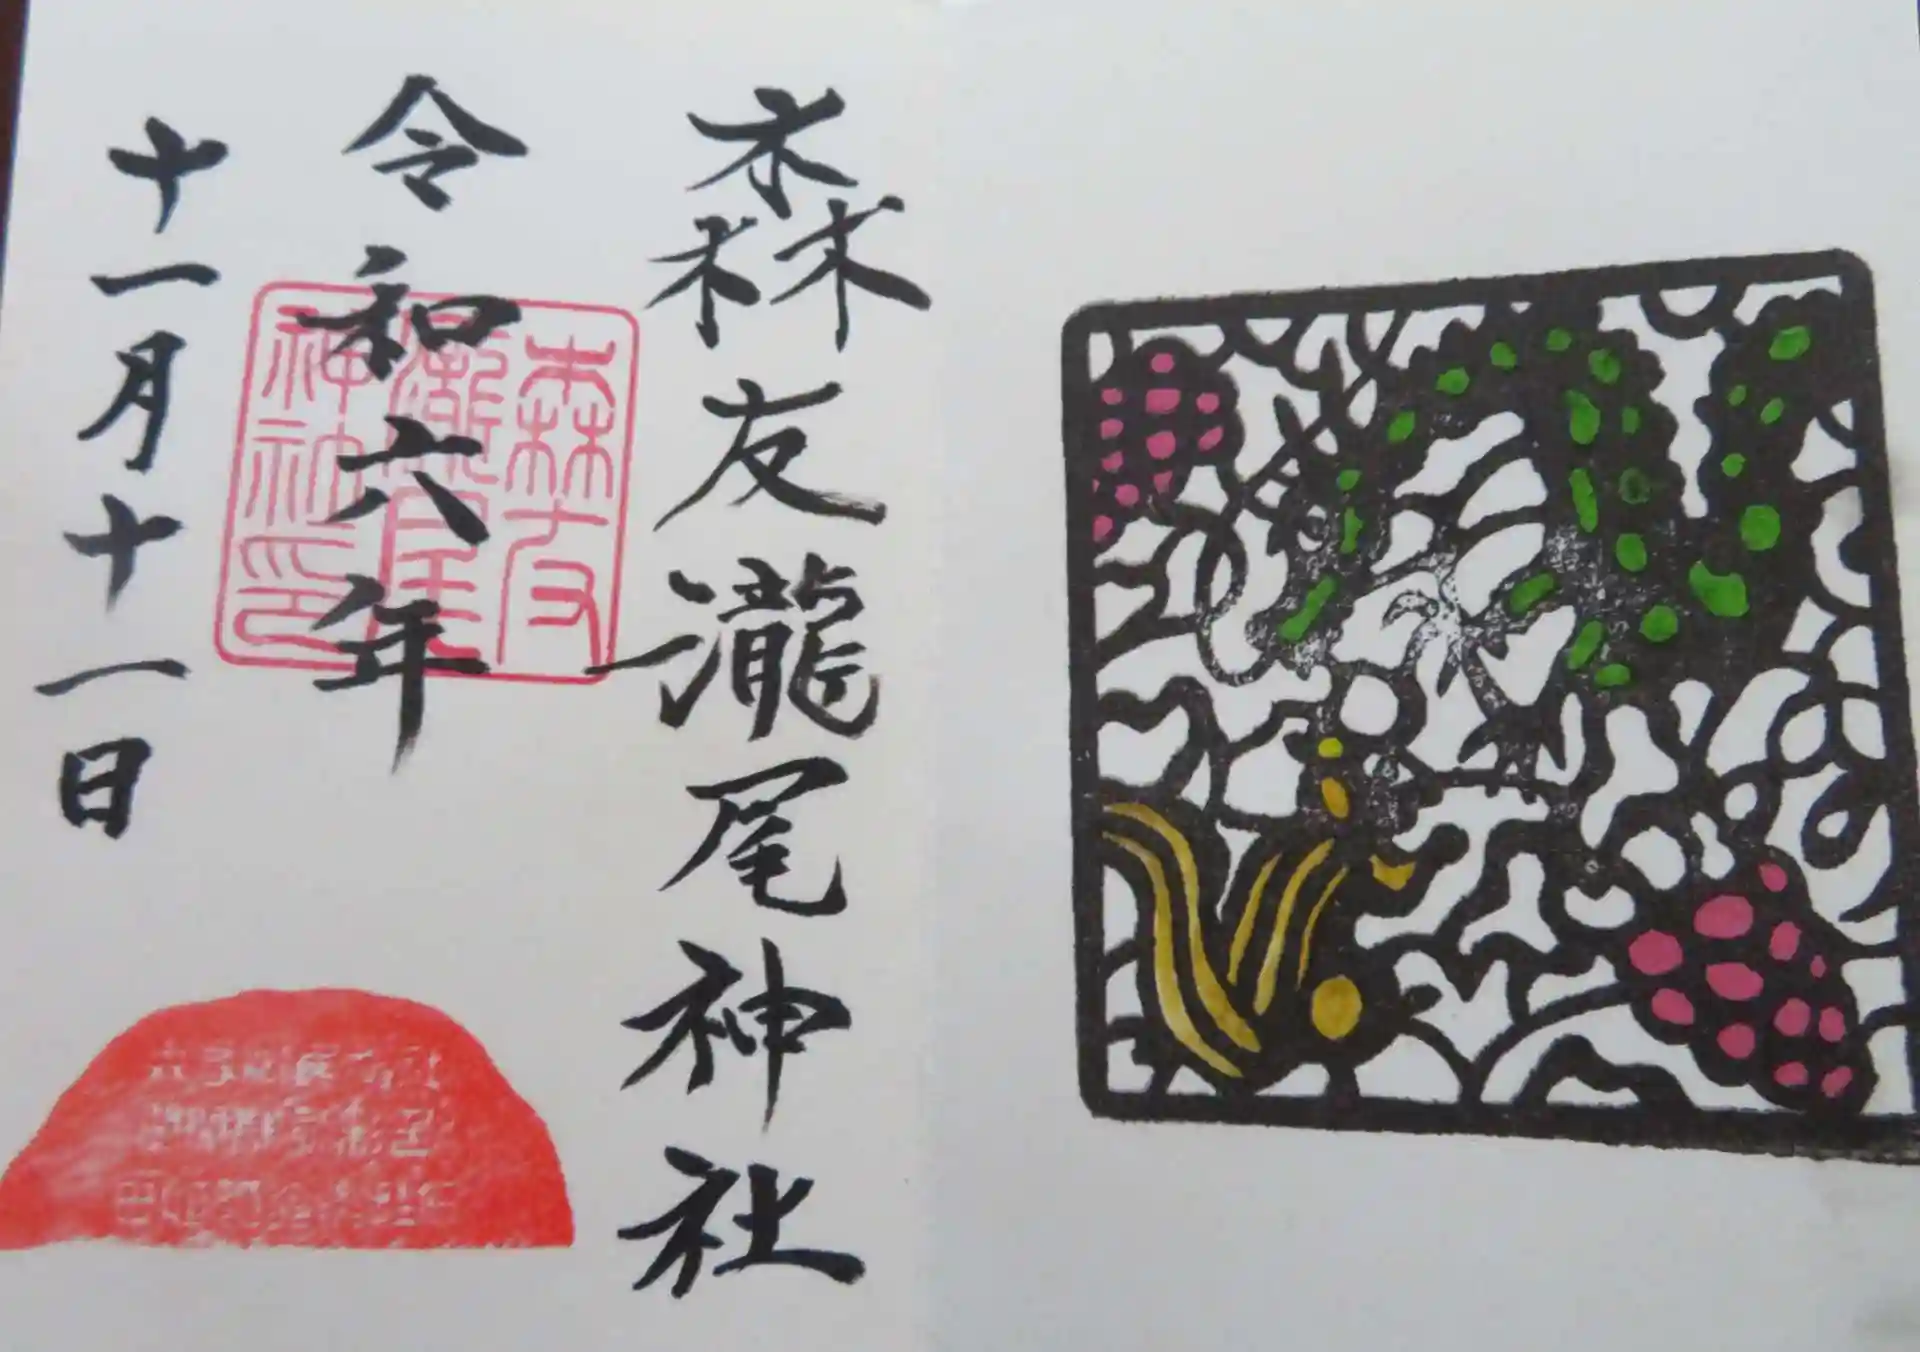 森友瀧尾神社
令和六年
十一月十一日
森友
瀧尾
神社印